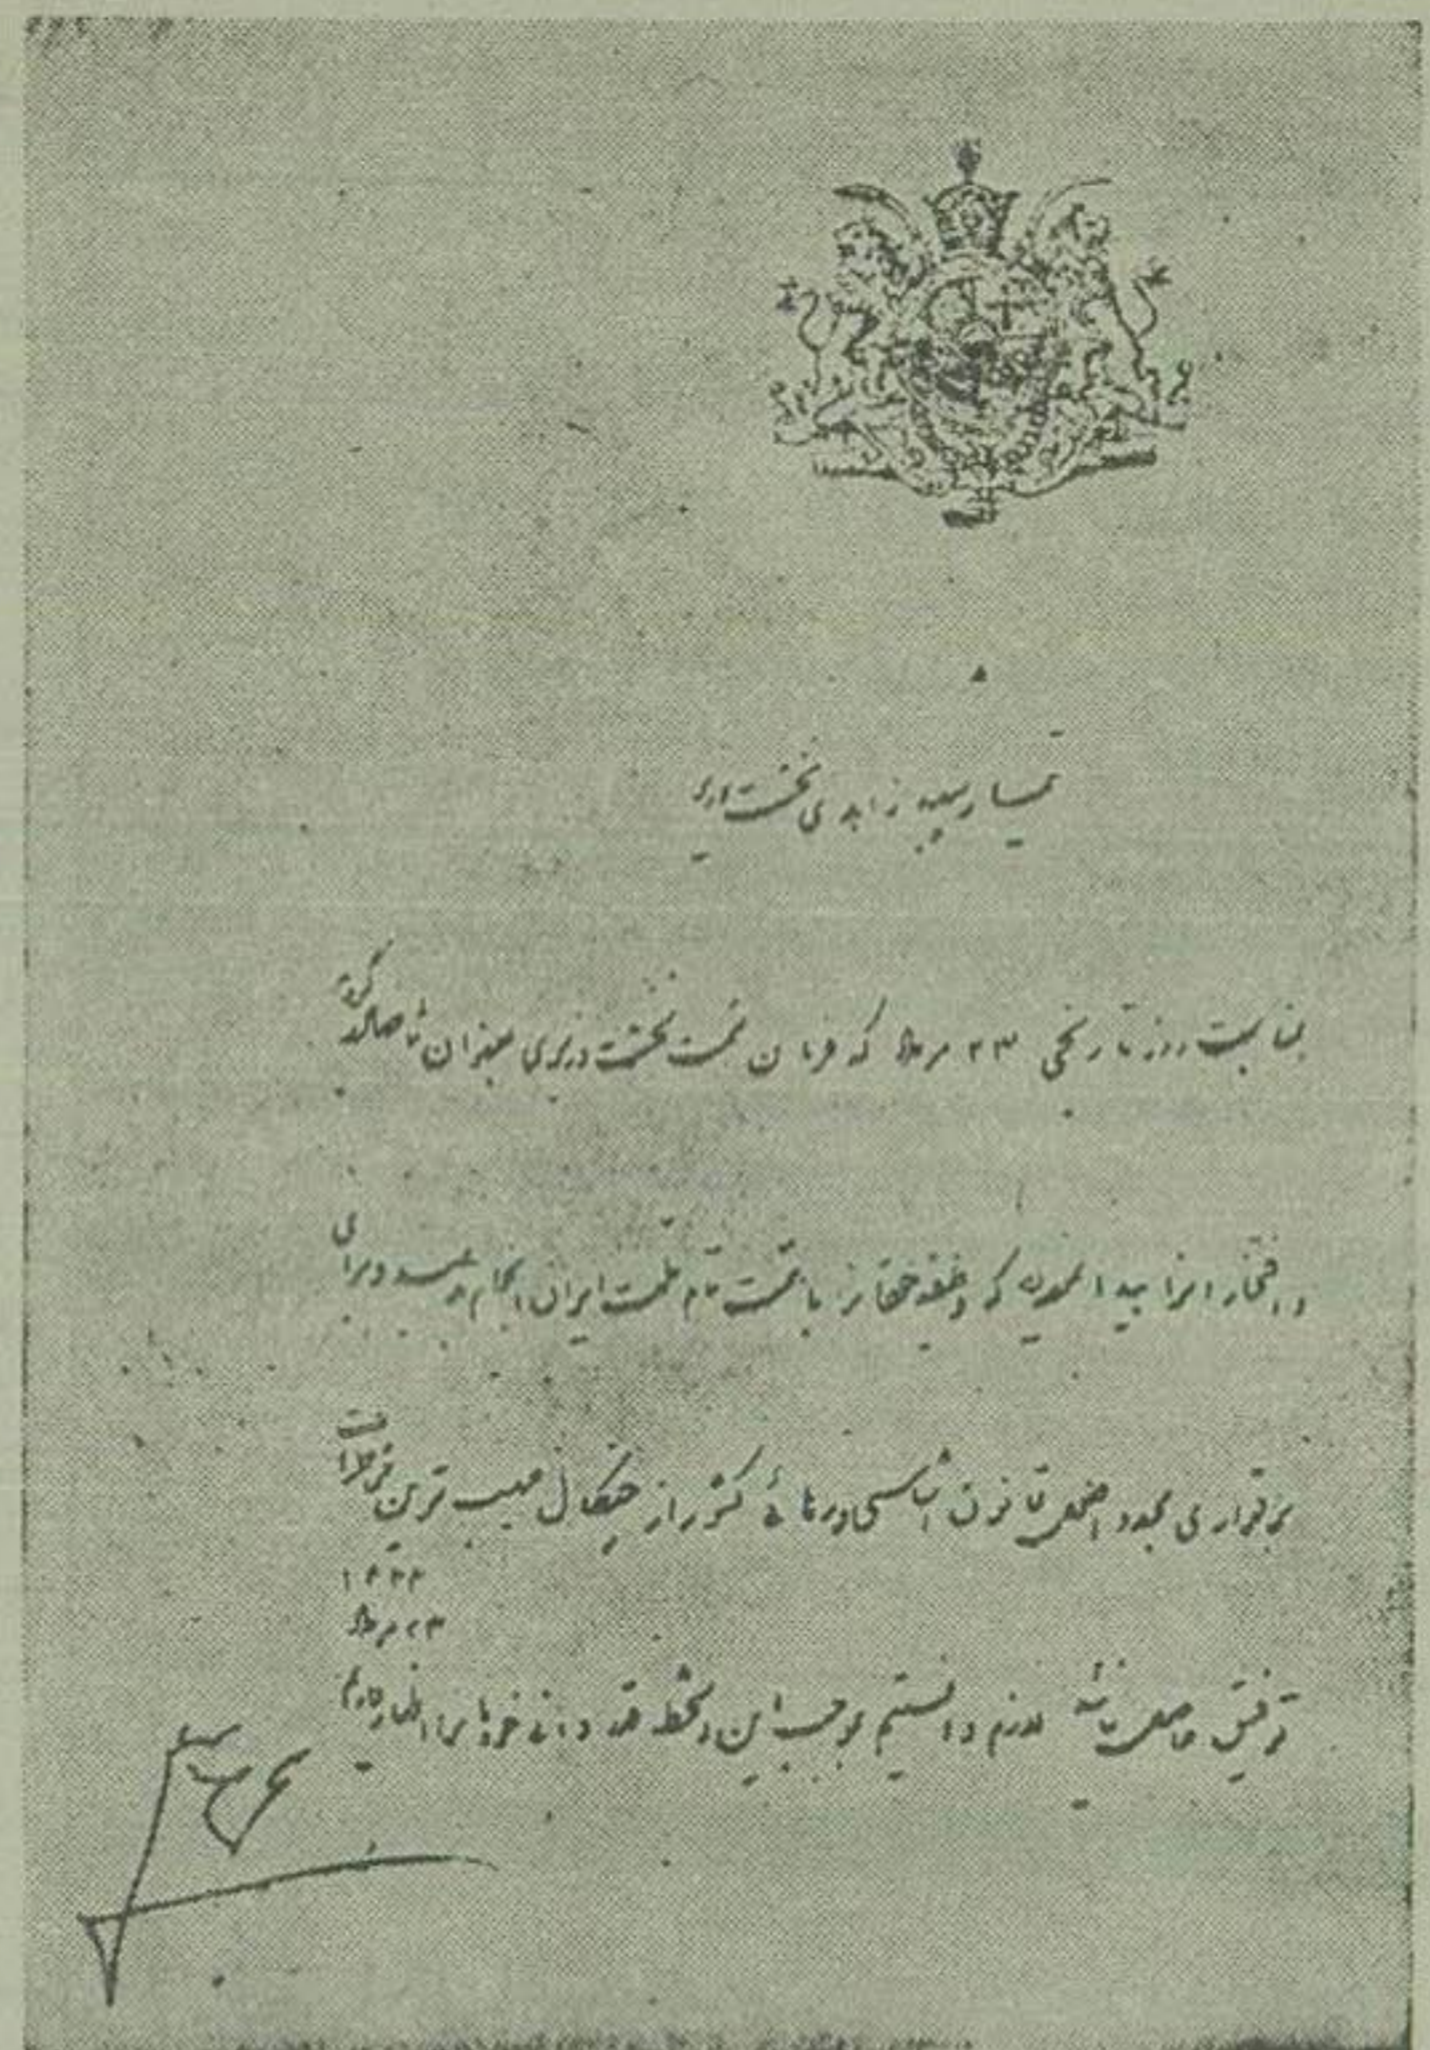 تیمسار سپهبد زاهدی نخست وزیر
بمناسبت روز تاریخی ۲۳ مرداد که فرمان سمت نخست وزیری بعنوان شما صادر گردید
و افتخار ابراز بعد الحمدلله که وظیفه خطیر با همت تمام ملت ایران انجام و برای
برقراری مجدد اصول قانون اساسی و رهائی کشور از چنگال مهیب ترین خطرات
توفیق حاصل شد لازم دانستیم بموجب این دستخط قدردانی خود را ابراز و اظهار داریم
۲۳ مرداد
۱۳۳۳